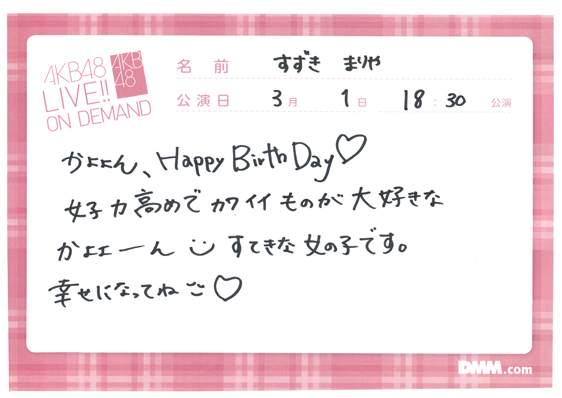 AKB48
LIVE!!
ON DEMAND
AKB
48
名前 すずき まりや
公演日 3月 1日 18:30 公演
かよよん、Happy Birth Day♡
女子力高めでカワイイものが大好きな
かよよーん すてきな女の子です。
幸せになってね♡
DMM.com